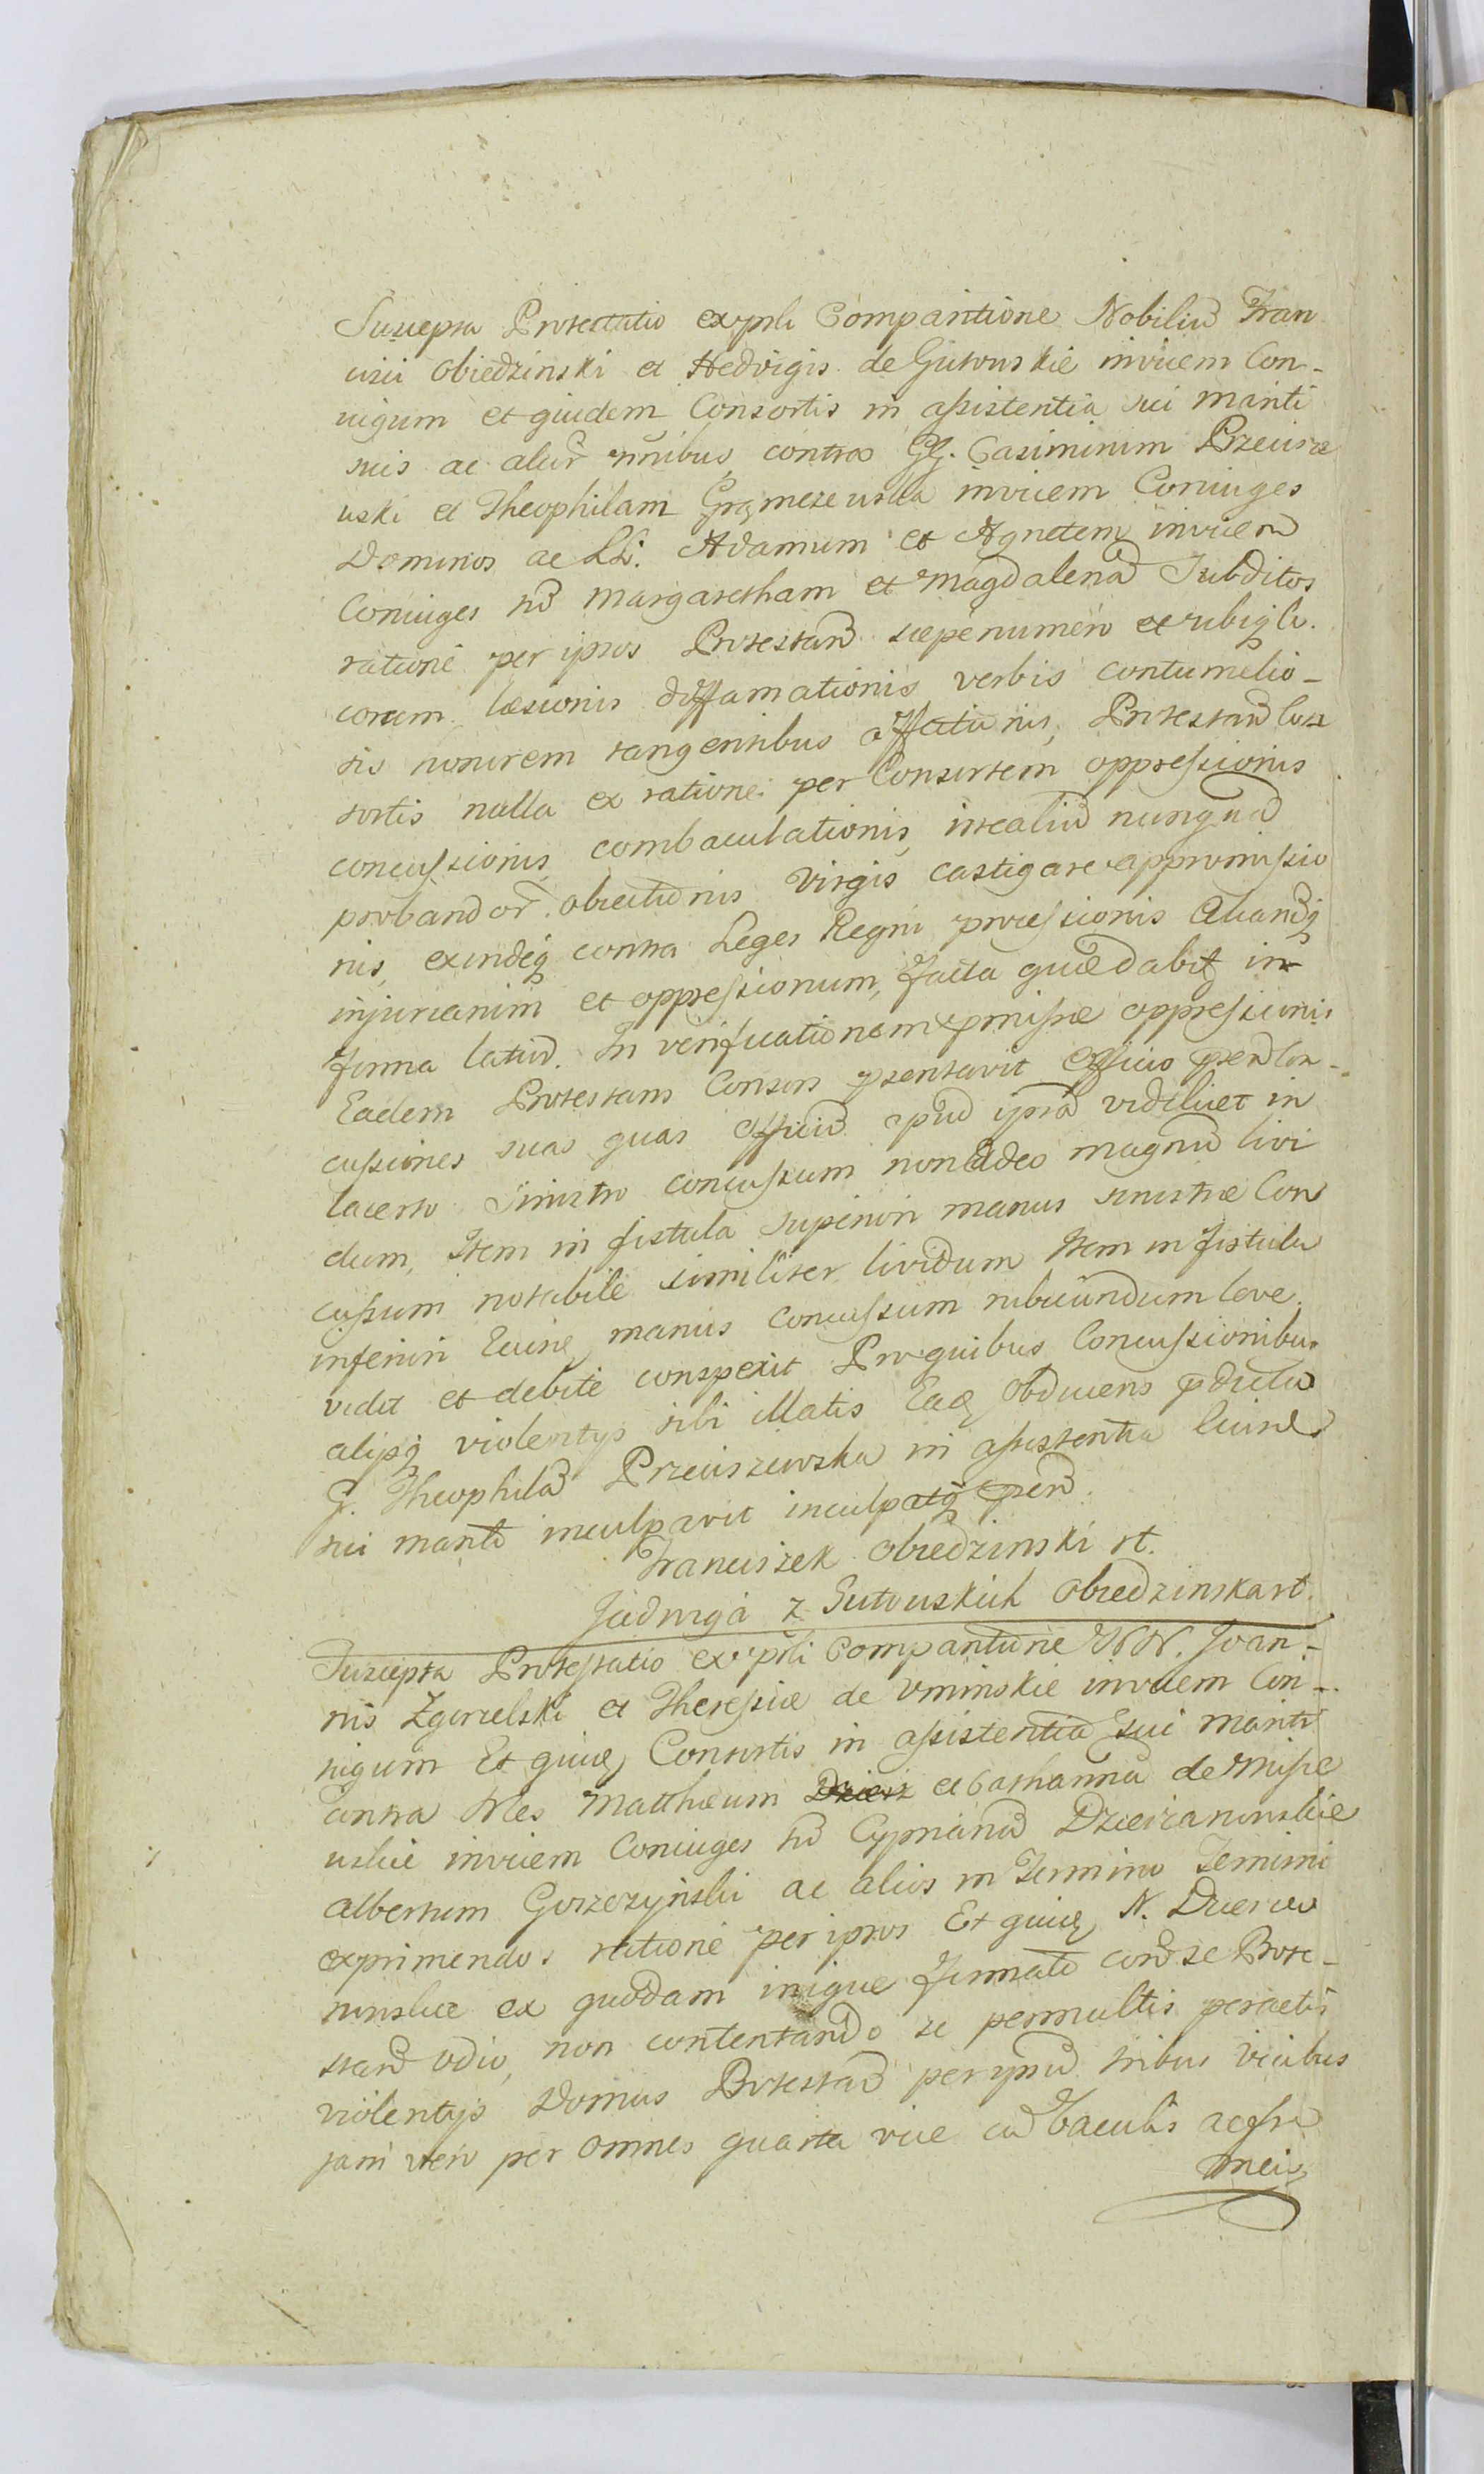 Suscepta Protestatio ex psli Comparitione Nobiliu Fran
cisci Obiedzinski et Hedvigis de Gutouskie invicem Con-
iugum et eiusdem Consortis in assistentia sui mariti
suis ac alior nnibus contra GG. Casimirum Przeciszo
uski et Theophilam Grzmezeuska invicem Coniuges
Dominos ac LL. Adamum et Agnetem invicem
Coniuges td Margaretham et Magdalena Subditos
ratione per ipsos Protestand saepenumero et ubiqle.
corum laesionis diffamationis verbis contumelio-
sis honorem tangentibus affectionis, Protestand Con
sortis nulla ex ratione per Consortem oppressionis
concussionis, combaculationis, intealiud nunquad
probandor obiectionis virgis castigare appromissio
nis, exindeq contra Leges Regni processionis aliandq
injuriarum et oppressionum, facta quae dabit in
forma latiud. In verificationem pmissae oppressionis
Eadem Protestans Consors psentavit officio psend Con-
cussiones suas quas officiu apud ipsa vidt licet in
lacerto sinistro concussum non adeo magnu livi
dum, Item in fistula superiori manus sinistrae Con
cussum notabile similiter lividum Item in fistula
inferiori Eiusd manus concussum rubicundum leve.
vidit et debite conspexit Pro quibus Concussionibus
alijsq violentijs sibi illatis Ead obducens pdicta
G. Theophila Przeciszewska in assistentia Eiusd
sui mariti inculpavit inculpatq psend.
Franciszek Obiedzinski st.
Jadwiga z Gutouskich Obiedzinska st.
Suscepta Protestatio ex psli Comparitione NN. Joan-
nis Zgorzelski et Theressiae de Uminskie invicem Con-
iugum Et eiusd Consortis in assistentia sui mariti
contra Nles Matthaeum Dzierz et Catharina de Misze
uskie invicem Coniuges td Cypriana Dzierzanouskie
Albertum Gorzezynski ac alios in Termino Termini
exprimendos ratione per ipsos Et eiusd N. Dzierza
nouskie ex quodam inique formato cord se Prote-
stand odio, non contentando se permultis peractis
violentijs Domus Protestand per ipsu tribus vicibus
jam vero per omnes quarta vice cu baculis ac fra
meis